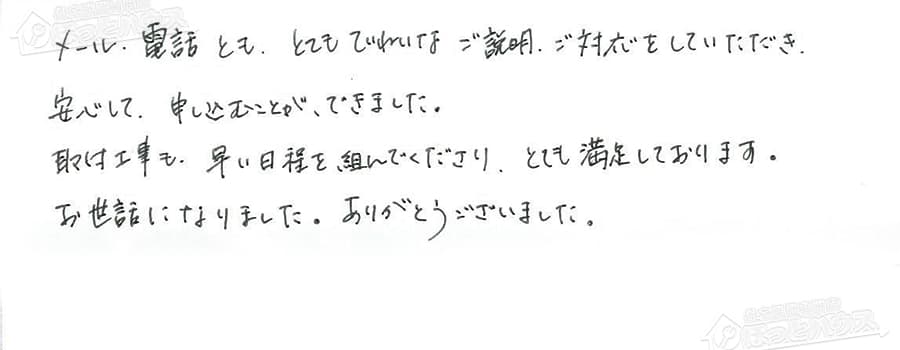 メール・電話とも、とてもていねいなご説明、ご対応をしていただき、
安心して、申し込むことが、できました。
取付工事も、早い日程を組んでくださり、とても満足しております。
お世話になりました。ありがとうございました。
ほっとハウス